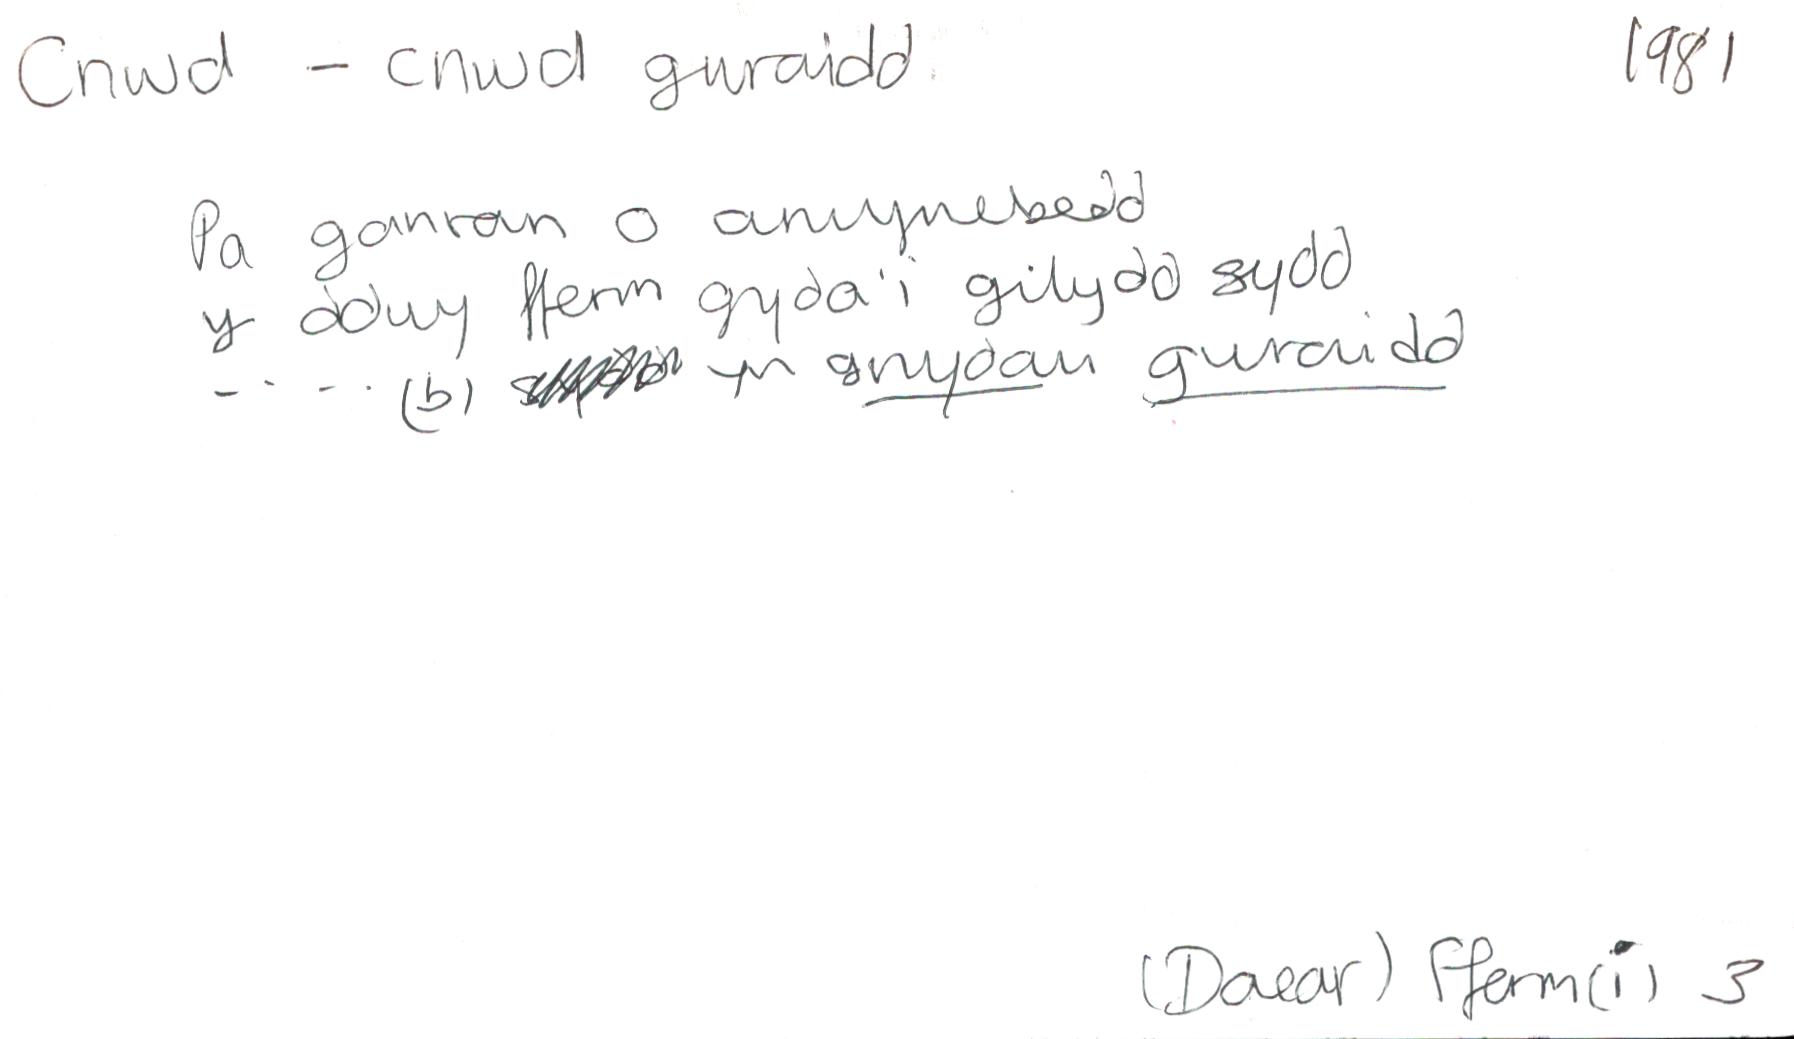 Cnwd - cnwd gwraidd 1981
Pa ganran o arwynebedd
y ddwy fferm gyda'i gilydd sydd
- . - . (b) yn gnydau gwraidd
(Daear) Fferm (i) 3